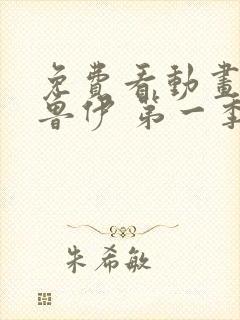 免費看動畫
魯伊 第一季
朱希敏